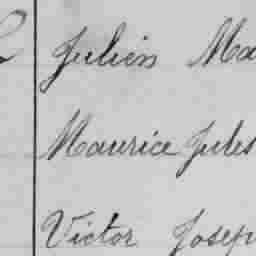 Julien Ma
Maurice Jules
Victor Josep